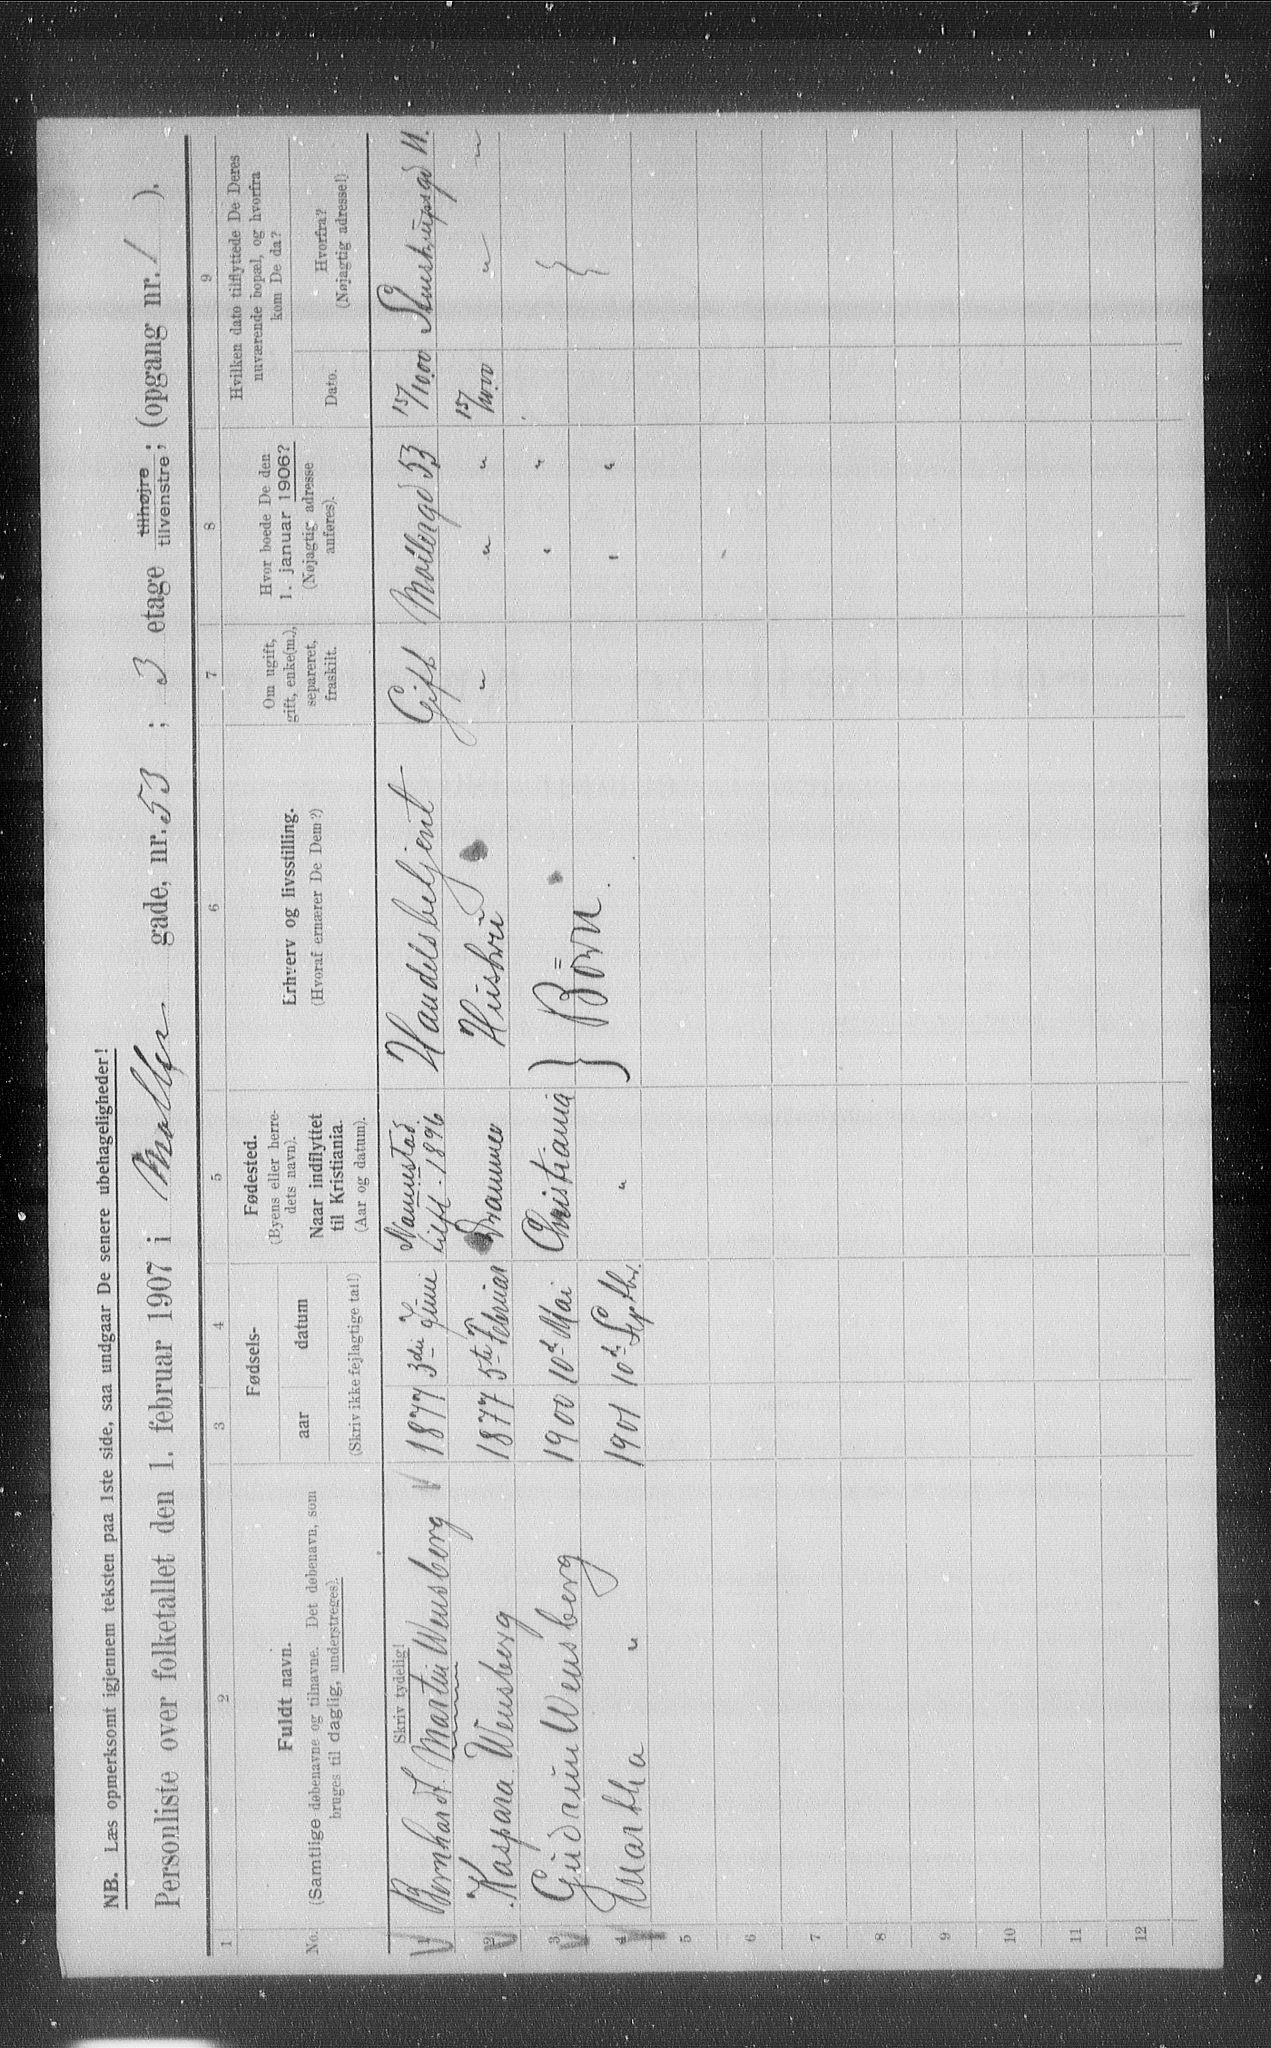 NB. Læs opmerksomt igjennem teksten paa 1ste side, saa undgaar De senere ubehageligheder!
Personliste over folketallet den 1. februar 1907 i Møller gade, nr. 53 ; 3 etage tilhøjre tilvenstre ; (opgang nr. / ).
1 2 3 4 5 6 7 8 9
No.
Fuldt navn.
(Samtlige døbenavne og tilnavne. Det døbenavn, som
bruges til daglig, understreges).
Fødsels-
aar datum
(Skriv ikke fejlagtige tal!)
Fødested.
(Byens eller herre-
dets navn).
Naar indflyttet
til Kristiania.
(Aar og datum).
Erhverv og livsstilling.
(Hvoraf ernærer De Dem?)
Om ugift,
gift, enke(m.),
separeret,
fraskilt.
Hvor boede De den
1. januar 1906?
(Nøjagtig adresse
anføres).
Hvilken dato tilflyttede De Deres
nuværende bopæl, og hvorfra
kom De da?
Dato.
Hvorfra?
(Nøjagtig adresse!)
Skriv tydelig!
1 Bernhardt Martin Wensberg 1877 3die Juni Nannestad tilfl. 1896 Handelsbetjent Gift Møllergd 53 15/10.00
2 Kaspara Wensberg 1877 5te Februar Drammen Hustru " " " 15/10.00 " "
3 Gudrun Wensberg 1900 10de Mai Christiania } Børn " "
4 Martha " 1901 10de Septbr. " " "
5
6
7
8
9
10
11
12